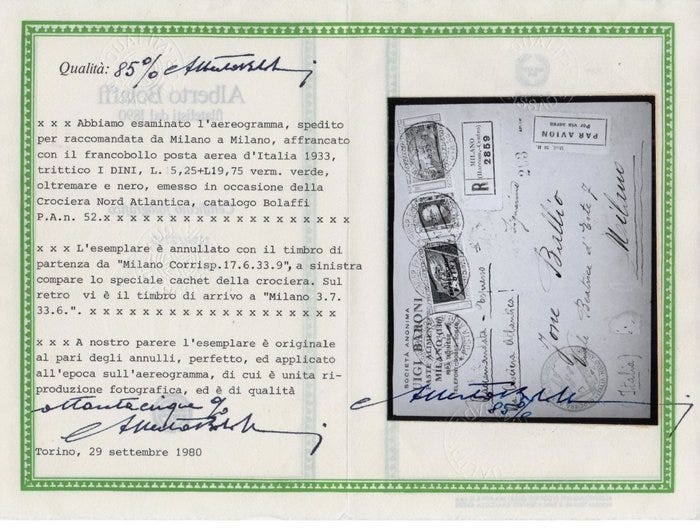 Qualità: 85%
x x x Abbiamo esaminato l'aereogramma, spedito
per raccomandata da Milano a Milano, affrancato
con il francobollo posta aerea d'Italia 1933,
trittico I DINI, L. 5,25+L19,75 verm. verde,
oltremare e nero, emesso in occasione della
Crociera Nord Atlantica, catalogo Bolaffi
P.A.n. 52.x x x x x x x x x x x x x x x x x x
x x x L'esemplare è annullato con il timbro di
partenza da "Milano Corrisp.17.6.33.9", a sinistra
compare lo speciale cachet della crociera. Sul
retro vi è il timbro di arrivo a "Milano 3.7.
33.6.". x x x x x x x x x x x x x x x x x x x
x x x A nostro parere l'esemplare è originale
al pari degli annulli, perfetto, ed applicato
all'epoca sull'aereogramma, di cui è unita ri-
produzione fotografica, ed è di qualità
ottantacinque %
Torino, 29 settembre 1980
PAR AVION
Per via aerea
MILANO
R 2859
SOCIETÀ ANONIMA
LUIGI BARONI
PASTE ALIMENTARI
MILANO
Milano
Italia
85%